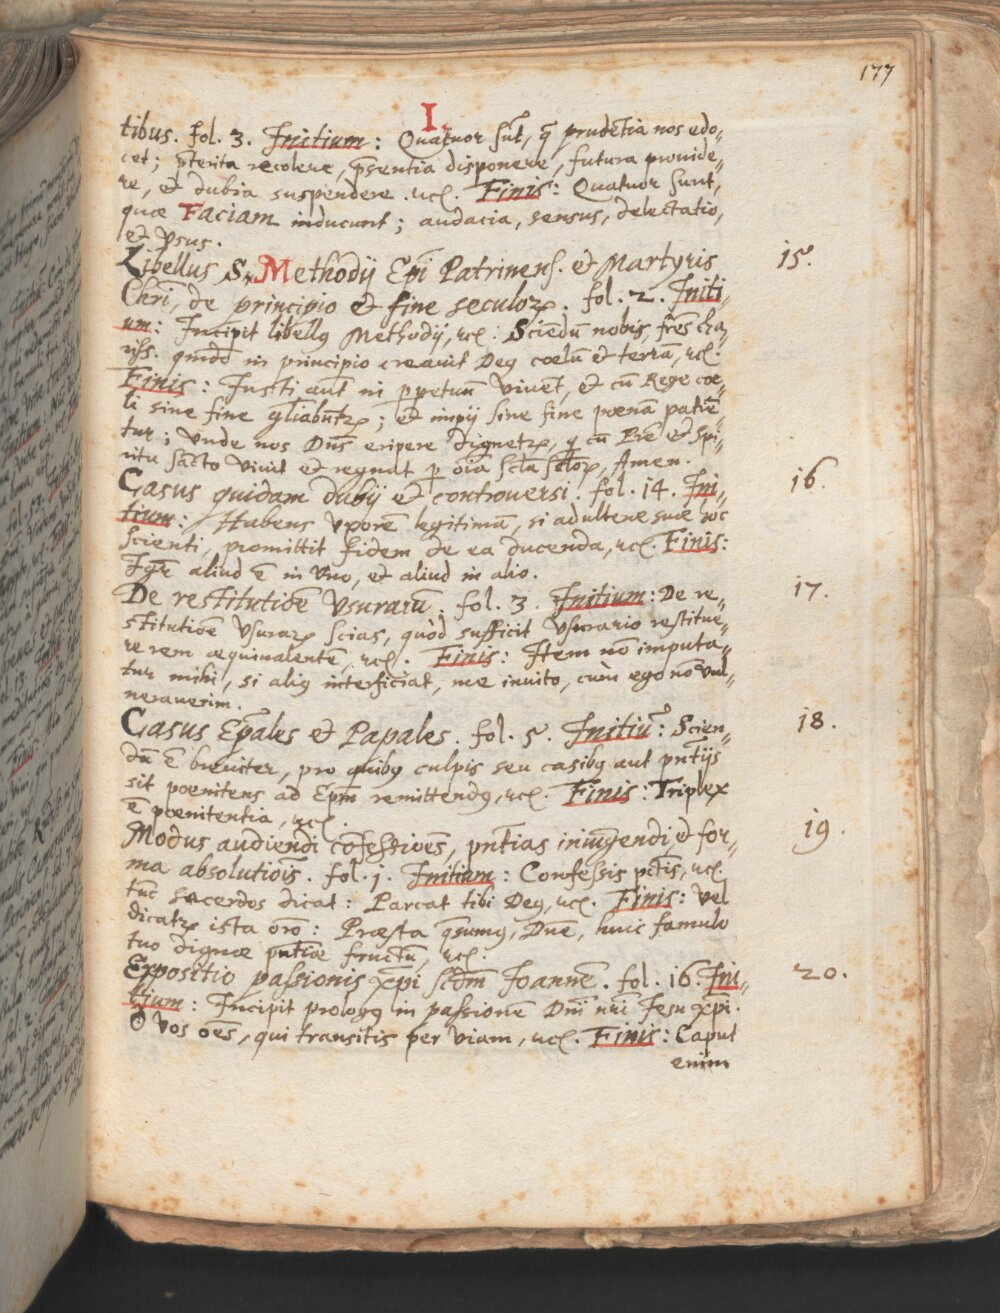 177
I.
tibus. fol. 3. Initium: Quatuor sūt, q̄ prudētia nos edo„
cet; p̄terita recolere, p̄sentia disponere, futura prouide„
re, et dubia suspendere. ꝛcꝭ. Finis: Quatuor sunt,
quæ Faciam inducunt; audacia, sensus, delectatio,
et Vsus.
Libellus S. Methodij Epī Patrinens. et Martyris 15.
Chrī, de principio et fine seculoꝝ. fol. 2. Initi„
um: Incipit libellꝰ Methodij, ꝛcꝭ: Sciēdū nobis, frēs cha„
riss. quōd in principio creauit Deꝰ coelū et terrā, ꝛcꝭ.
Finis: Justi aūt in ꝑpetuū vivēt, et cū Rege coe„
li sine fine gl̄iabūtꝝ; et impij sine fine poenā patiē„
tur; Vnde nos Dn̄s eripere dignetꝝ, q̄ cū Prē et Spi„
ritu sācto vivit et regnat ꝑ oīa scl̄a scl̄oꝝ, Amen.
Casus quidam dubij et controuersi. fol. 14. Ini„ 16.
tium: Habens vxorē legitimā, si adulteræ suæ hoc
scienti, promittit fidem de ea ducenda, ꝛcꝭ. Finis:
Igr̄ aliud ē in vno, et aliud in alio.
De restitutiōe Vsuraruū. fol. 3. Initium: De re„ 17.
stitutiōe Vsuraꝝ scias, quòd sufficit Vsurario restitue„
re rem æquiualentē, ꝛcꝭ. Finis: Item nō imputa„
tur mihi, si aliꝰ interficiat, me inuito, cùm ego nō vul„
nerauerim.
Casus Ep̄ales et Papales. fol. 5. Initiū: Scien„ 18.
dū ē breuiter, pro quibꝰ culpis seu casibꝰ aut pn̄tijs
sit poenitens ad Ep̄m remittendꝰ, ꝛcꝭ. Finis: Triplex
ē poenitentia, ꝛcꝭ.
Modus audiendi cōfessiōes, pn̄tias iniūgendi et for„ 19.
ma absolutiōis. fol. j. Initium: Confessis pctīs, ꝛcꝭ.
tūc sacerdos dicat: Parcat tibi Deꝰ, ꝛcꝭ. Finis: Vel
dicatꝝ ista orō: Præsta q̄sumꝰ, Dn̄e, huic famulo
tuo dignæ pn̄tiæ fructū, ꝛcꝭ.
Expositio passionis xp̄i scdm̄ Joannē. fol. 16. Ini„ 20.
tium: Incipit prologꝰ in passionē Dn̄i nr̄i Jesu xp̄i.
O vos oēs, qui transitis per viam, ꝛcꝭ. Finis: Caput
enim